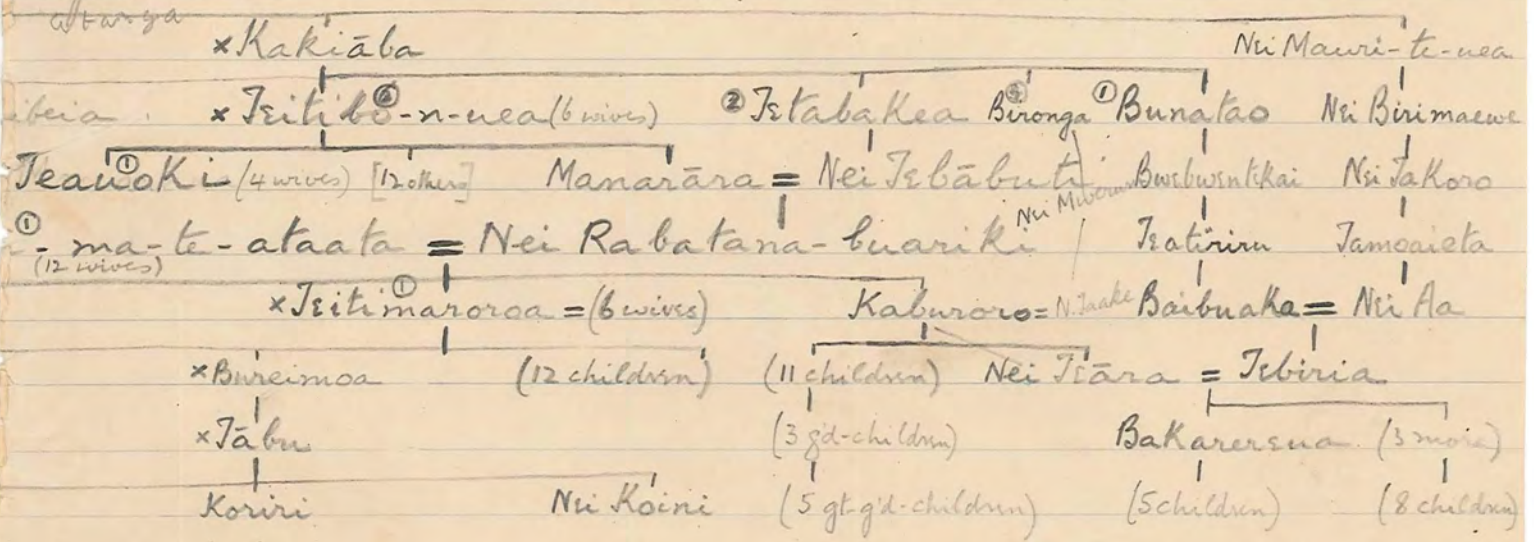 ×Kakiāba Nei Mauri-te-uea
ibeia. ×Teitibō-n-uea (6 wives) ② Tetabakea Bironga ① Bunatao Nei Birimaewe
Teauoki ① (4 wives) [12 others] Manarāra = Nei Tebābuti Bwebwentekai Nei Takoro
① -ma-te-ataata = Nei Rabatana-buariki Nei Teatiriru Tamoaieta
(12 wives)
×Teitimaroroa ① = (6 wives) Kaburoro = N. Taake Baibuaka = Nei Aa
×Bureimoa (12 children) (11 children) Nei Teāra = Tebiria
×Tābu (3 g'd-children) Bakarereua. (3 more)
Koriri Nei Koini (5 gt-g'd-children) (5 children) (8 children)